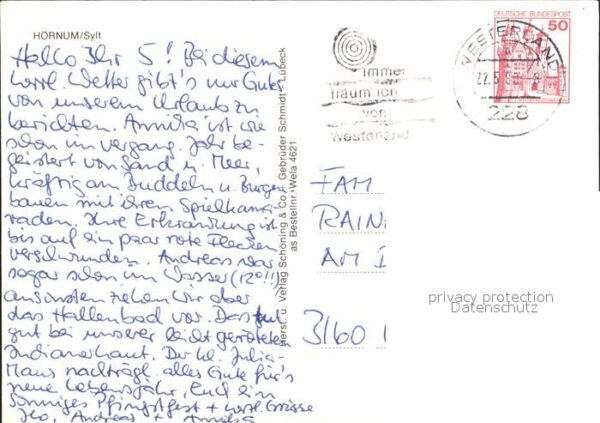 HÖRNUM/Sylt
Hallo Ihr 5! Bei diesem
herrl. Wetter gibt's nur Gutes
von unserem Urlaub zu
berichten. Annika ist wie
schon im vergang. Jahr be-
geistert von Sand u. Meer,
kräftig am Buddeln u. Burgen
bauen mit ihren Spielkame-
raden. Ihre Erkrankung ist
bis auf ein paar rote Flecken
verschwunden. Andreas war
sogar schon im Wasser (12°!!)
ansonsten ziehen wir aber
das Hallenbad vor. Das tut
gut bei unserer leicht geröteten
Indianerhaut. Der kl. Julia-
Maus nachträgl. alles Gute für's
neue Lebensjahr, Euch ein
sonniges Pfingstfest + herzl. Grüsse
Andreas + Annika
Herst. u. Verlag Schöning & Co + Gebrüder Schmidt, Lübeck
as Bestellnr. Wela 4621
immer
träum' ich
von
Westerland
WESTERLAND
22.5.80
228
DEUTSCHE BUNDESPOST
50
FAM
RAIN
AM
3160
privacy protection
Datenschutz